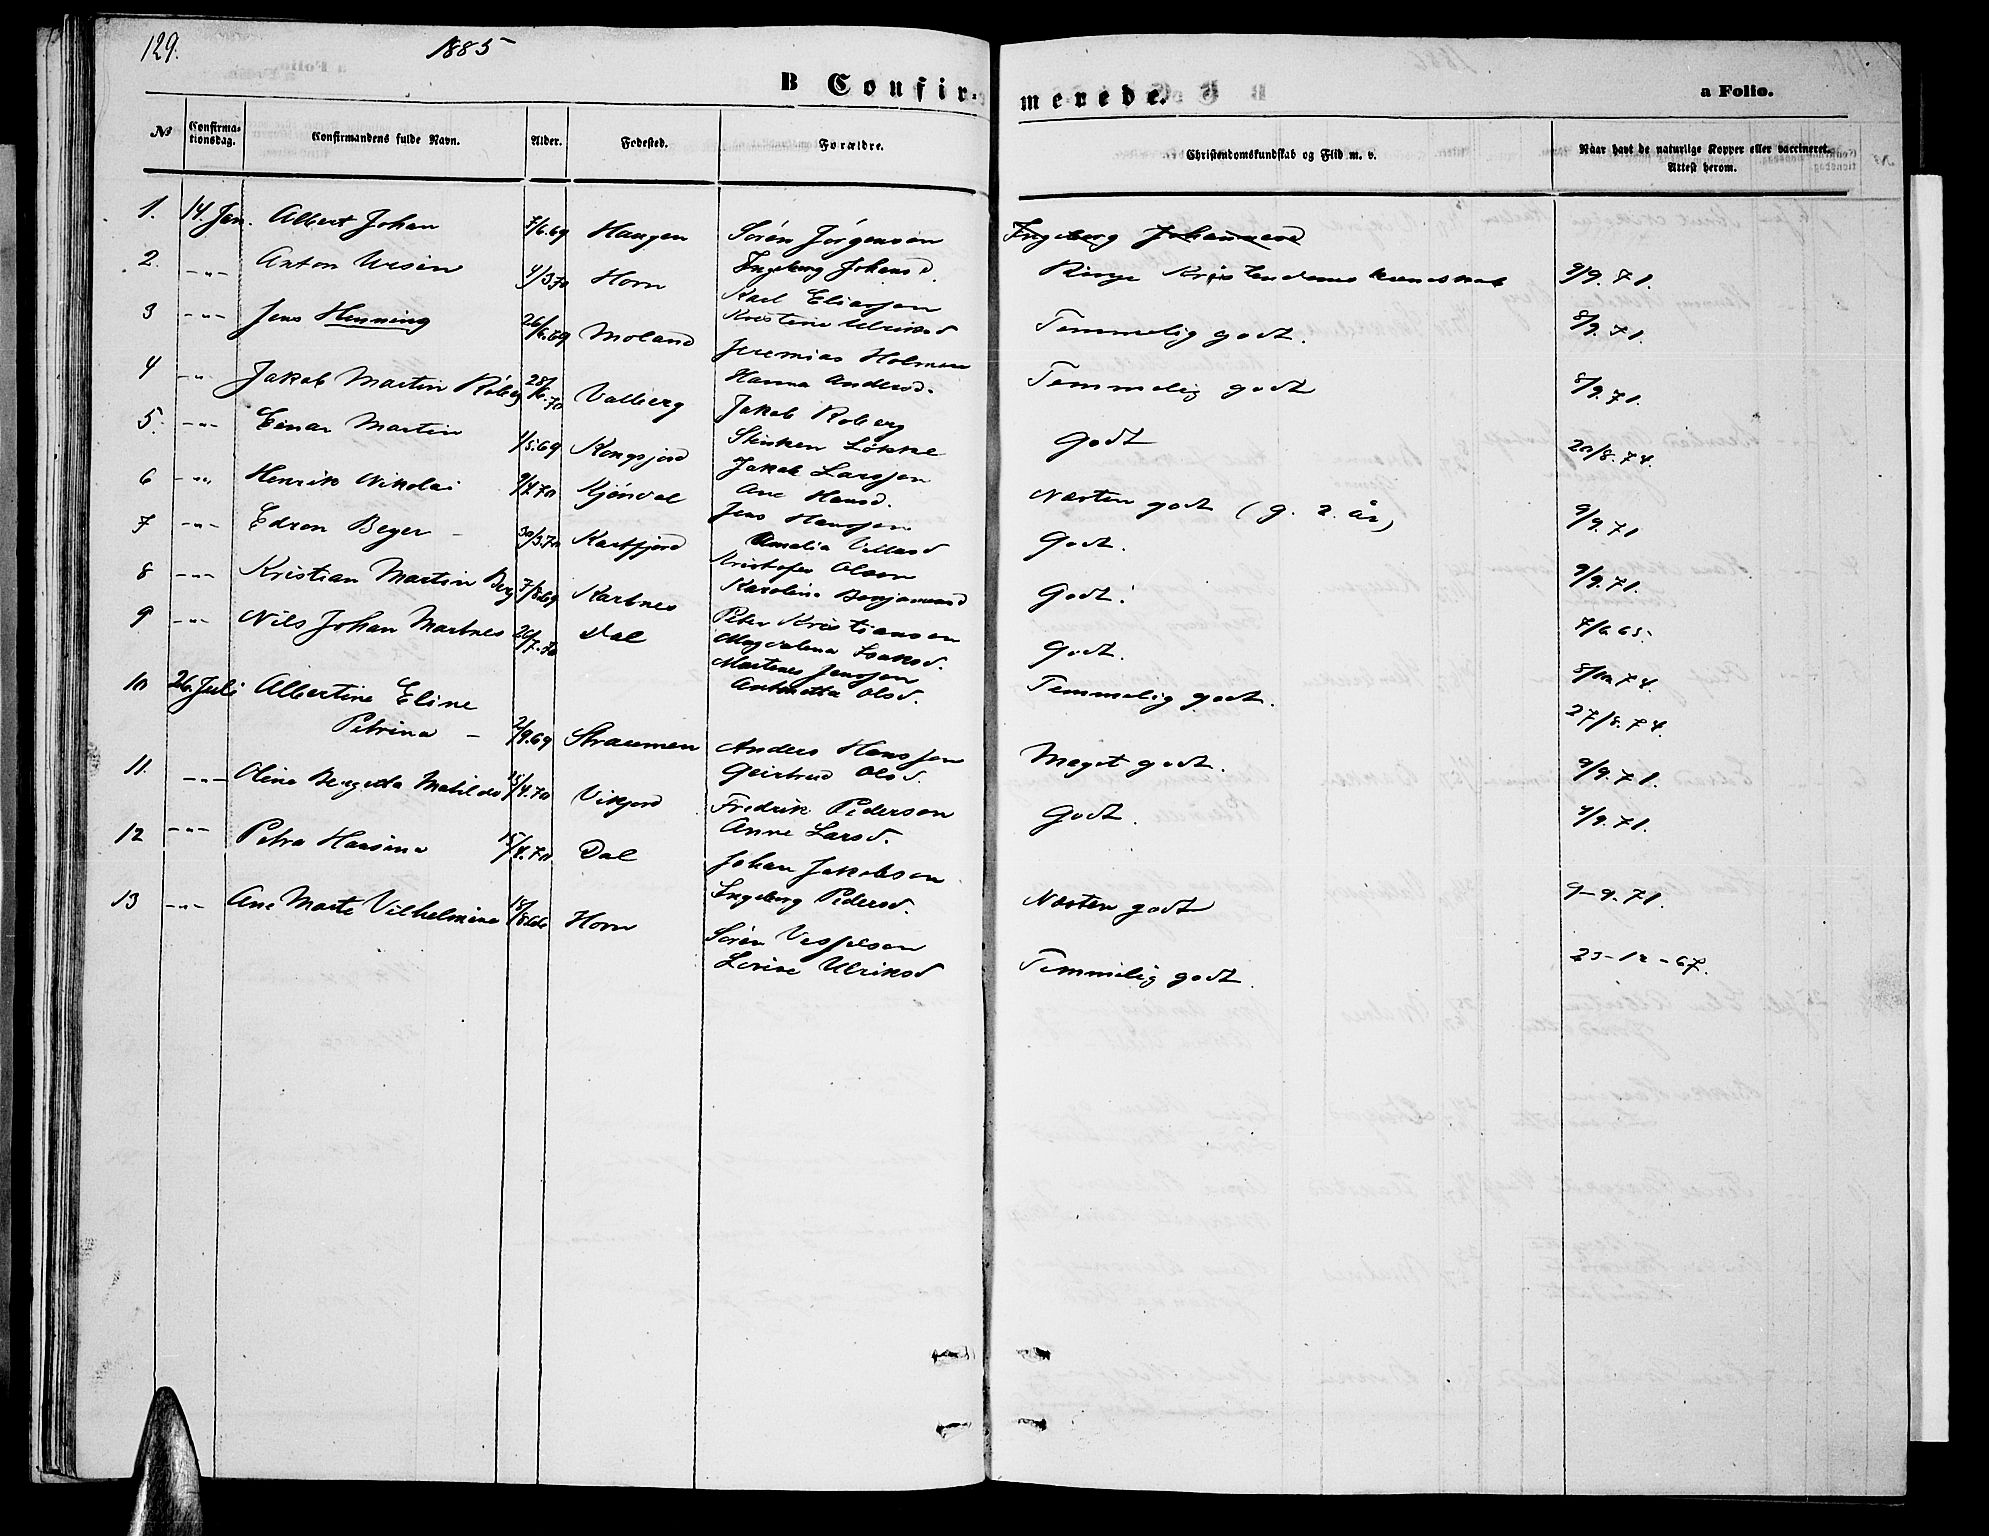 129. 1885
B Confir-
merede.
a Folio.
No Confirma-tionsdag. Confirmandens fulde Navn. Alder. Fødested. Forældre. Christendomskundskab og Flid m. v. Naar havt de naturlige Kopper eller vaccineret. Attest herom.
1. 14. Jan. Albert Johan 7/6.69 Haugen Sørén Jørgensen Ingeborg Johannesd
Ingeborg Johansd.
Ringe Kristendomskundskab 9/9.71.
2. -"- Anton Ursin 4/3.70 Horn Karl Eliassen
Kristine Ulriksd Temmelig godt. 8/9.71.
3 -"- Jens Henning 26/6.69 Moland Jeremias Holmen
Hanna Andersd. Temmelig godt 8/9.71.
4 -"- Jakob Martin Roberg 28/6.70 Valberg Jakob Roberg
Løkke Godt 20/8.74.
5. -"- Einar Martin 1/5.69 Kongsjord Jakob Larssen
Ane Hansd. Næsten godt (g. 2. år) 9/9.71
6 -"- Henrik Nikolai 9/4.70 Kjóndal Jens Hanssen
Amalia Godt. 9/9.71.
7 -"- Edron Beyer - 30/3.70 Kartfjord Kristofer Olsen
Karoline Benjaminsd Godt. 7/6 65.
8 -"- Kristian Martin Berg 7/8.69 Kartnes Peter Kristiansen
Magdalena Isaksd. Godt. 8/10 74.
9 -"- Nils Johan Martines 26/7.70 Dal Martines Jenssen
Antonetta Olsd. Temmelig godt. 27/8.74.
10 26. Juli Albertine Eline
Petrina - 2/9.69 Straumen Anders Hanssen
Geirtrud Olsd. Meget godt. 9/9.71.
11. -"- Oline Bergitta Matilde 15/4.70 Vikjord Fredrik Pedersen
Anne Larsd. Godt. 4/9.71.
12 -"- Petra Hansina 15/4.70 Dal Johan Jakobsen
Ingeborg Pedersd. Næsten godt 9-9.71.
13 -"- Ane Marte Vilhelmine 18/8.66 Horn Sørén
Lovise Ulriksd Temmelig godt. 23-12-67.